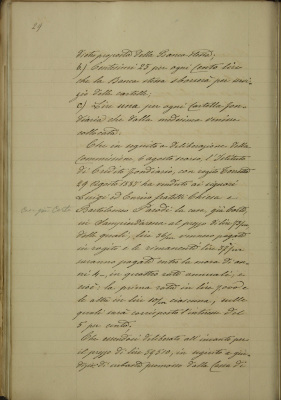 29
Vista proposta della Banca stessa.
b) Centesimi 25 per ogni cento lire
che la Banca stessa sborserà per
delle cartelle;
c) Lire una per ogni cartella fon-
diaria che dalla medesima venisse
collocata.
Che in seguito a deliberazione della
Commissione, 6 agosto scorso, l'Istituto
di Credito fondiario, con rogito
29 Agosto 1887 ha venduto ai signori
Luigi ed fratelli Chiesa e
Bartolomeo Parodi la casa, già
in Sampierdarena al prezzo di lire
delle quali, lire furono pagate
in rogito e le rimanenti lire
saranno pagate entro la mora di an-
ni 4, in quattro rate annuali, e
cioè: la prima rata in lire e
le altre in lire ciascuna, sulle
quali sarà corrisposto l'interesse del
5 per cento.
Che essendosi deliberato all'incanto per
il prezzo di lire in seguito a giu-
dizio di subasta promosso dalla Cassa di